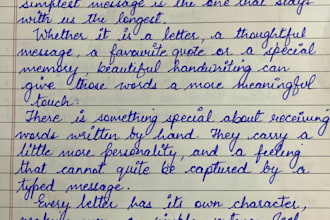 simplest message is the one that stays
with us the longest.
Whether it is a letter, a thoughtful
message, a favourite quote or a special
memory, beautiful handwriting can
give those words a more meaningful
touch.
There is something special about receiving
words written by hand. They carry a
little more personality, and a feeling
that cannot quite be captured by a
typed message.
Every letter has its own character,